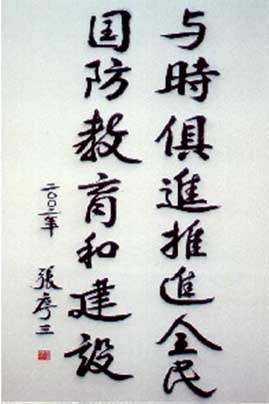 与時俱進推進全民
国防教育和建設
二〇〇二年
張序三